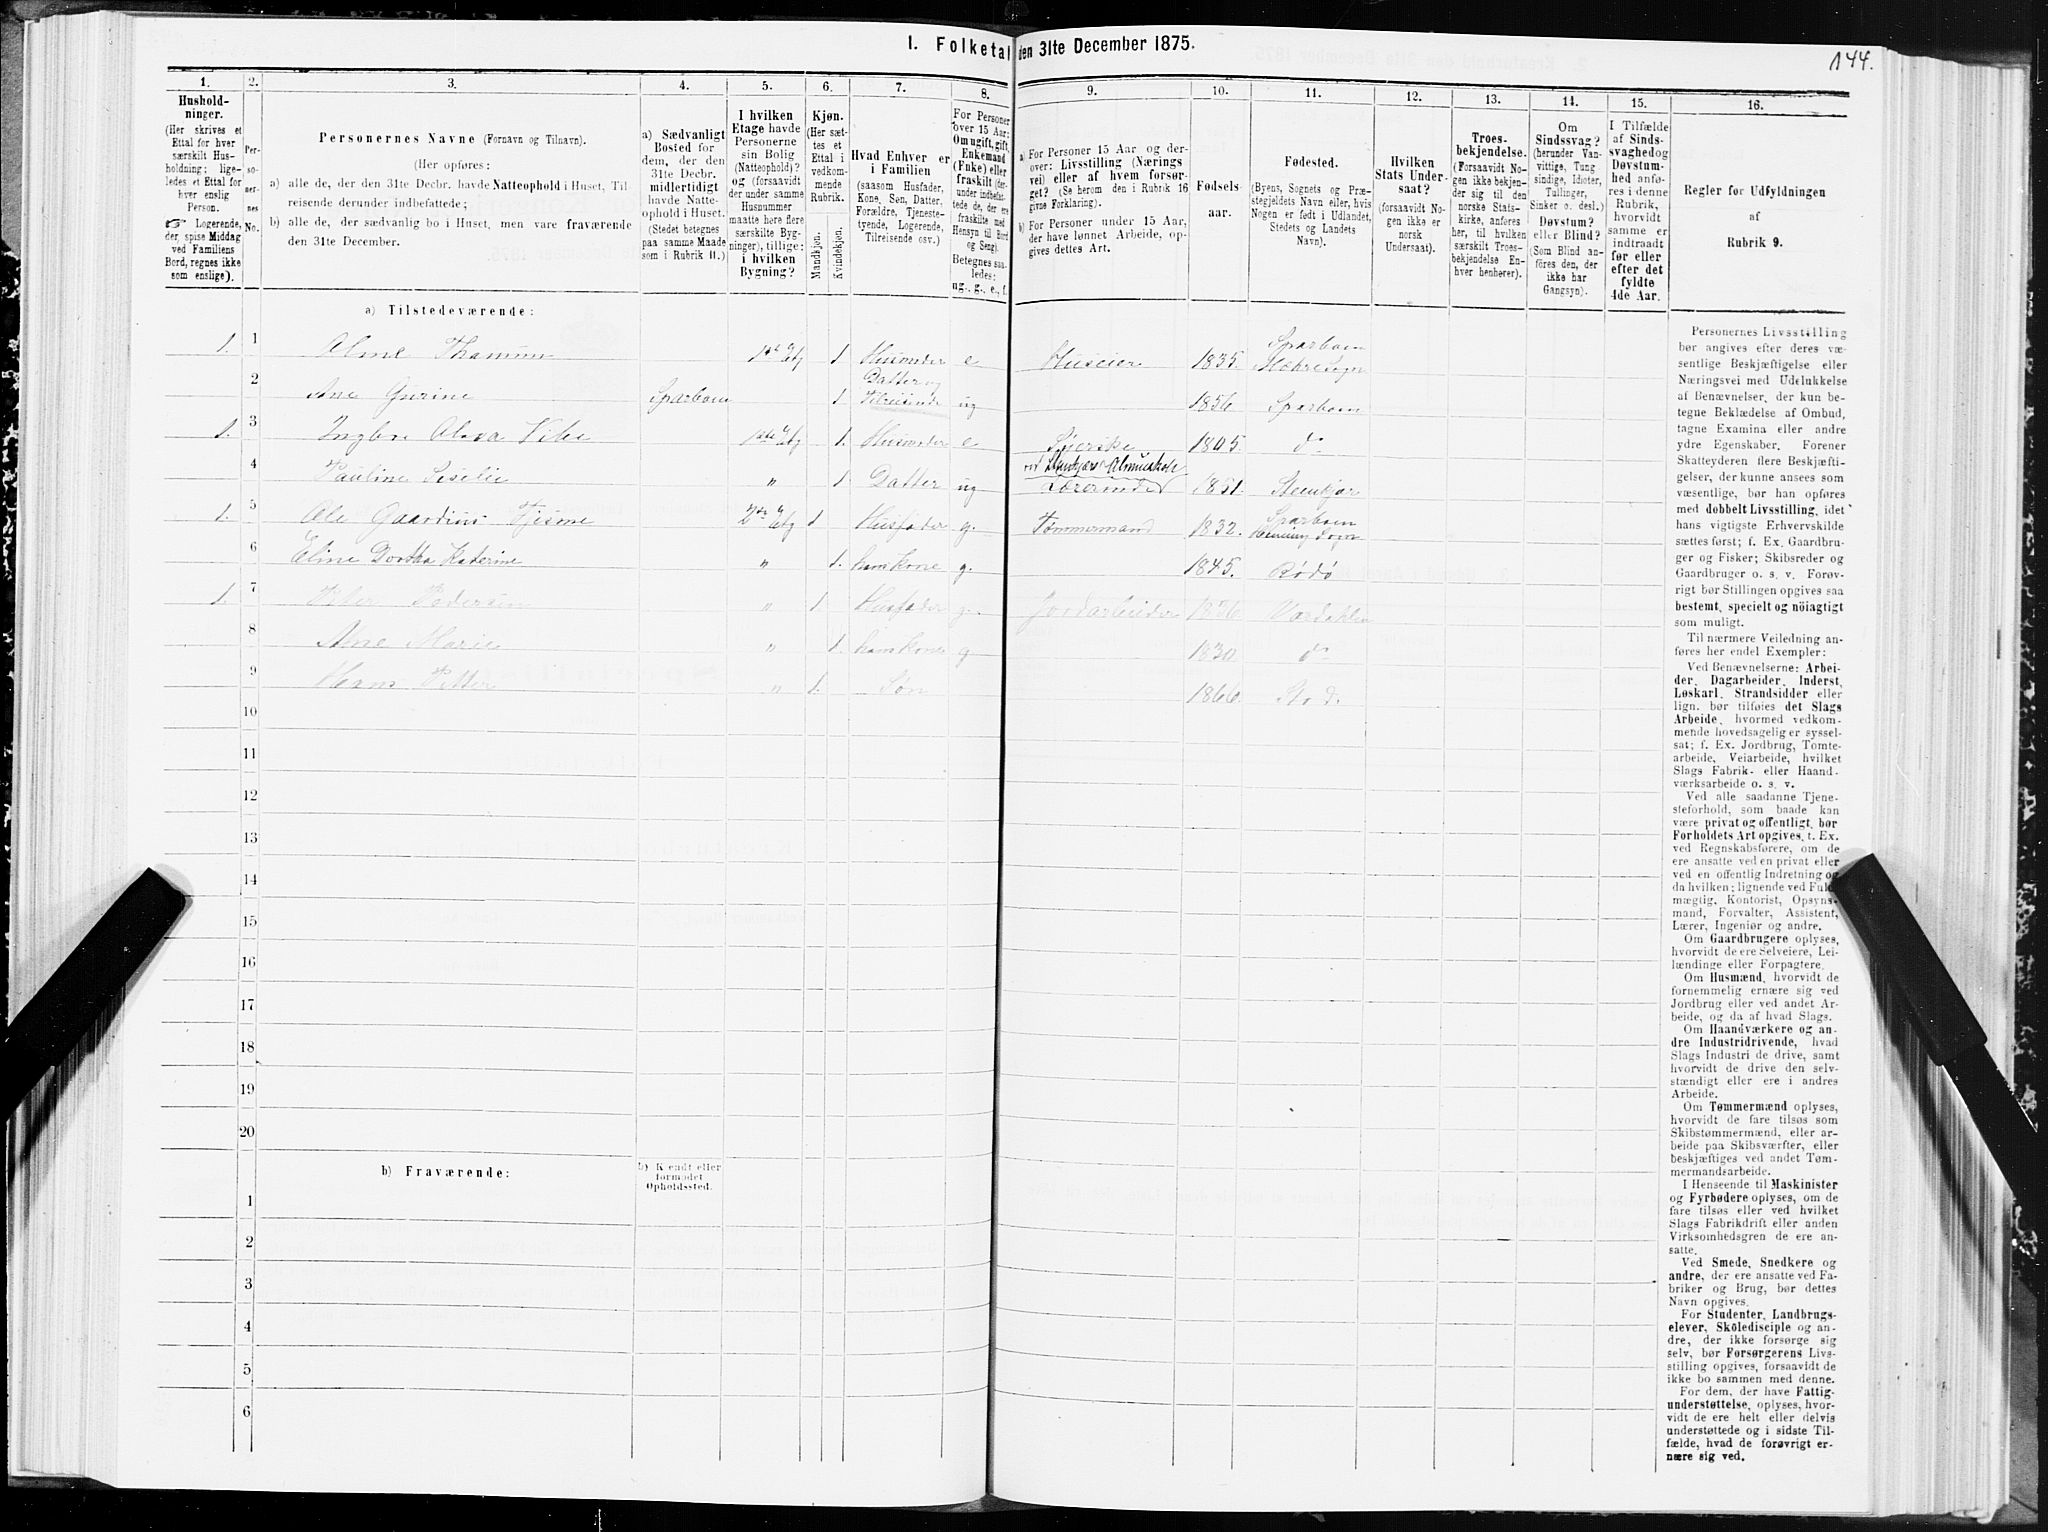 1. Folketal den 31te December 1875.
144.
1.
2.
3.
4.
5.
6.
7.
8.
9.
10.
11.
12.
13.
14.
15.
16.
Hushold-
ninger.
(Her skrives et
Ettal for hver
særskilt Hus-
holdning; lige-
ledes et Ettal for
hver enslig
Person.
☞ Logerende,
der, spise Middag
ved Familiens
Bord, regnes ikke
som enslige).
Per-
so-
ner-
nes
No.
Personernes Navne (Fornavn og Tilnavn).
(Her opføres:
a) alle de, der den 31te Decbr. havde Natteophold i Huset, Til
reisende derunder indbefattede;
b) alle de, der sædvanlig bo i Huset, men vare fraværende
den 31te December.
a) Sædvanligt
Bosted for
dem, der den
31te Decbr.
midlertidigt
havde Natte-
ophold i Huset.
(Stedet betegnes
paa samme Maade
som i Rubrik 11.)
I hvilken
Etage havde
Personerne
sin Bolig
(Natteophold)?
og (forsaavidt
der under samme
Husnummer
maatte høre flere
særskilte Byg-
ninger), tillige:
i hvilken
Bygning?
Kjøn.
(Her sæt-
tes et
Ettal i
vedkom-
mende
Rubrik.
Mandkjøn.
Kvindekjøn.
Hvad Enhver er
i Familien
(saasom Husfader,
Kone, Søn, Datter,
Forældre, Tjeneste-
tyende, Logerende,
Tilreisende osv.)
For Personer
over 15 Aar:
Om ugift, gift,
Enkemand
(Enke) eller
fraskilt (der-
under indbefat-
tede de, der ere
fraskilte med
Hensyn til Bord
og Seng).
Betegnes saa-
ledes:
ug., g., e., f.
a) For Personer 15 Aar og der-
over: Livsstilling (Nærings
vei) eller af hvem forsør-
get? (Se herom den i Rubrik 16
givne Forklaring).
b) For Personer under 15 Aar,
der have lønnet Arbeide, op-
gives dettes Art.
Fødsels-
aar.
Fødested.
(Byens, Sognets og Præ-
stegjeldets Navn eller, hvis
Nogen er født i Udlandet,
Stedets og Landets
Navn).
Hvilken
Stats Under-
saat?
(forsaavidt No-
gen ikke er
norsk
Undersaat).
Troes-
bekjendelse.
(Forsaavidt No-
gen ikke bekjen-
der sig til den
norske Stats-
kirke, anføres
her, til hvilken
særskilt Troes-
bekjendelse En-
hver henhører).
Om
Sindssvag?
(herunder Van-
vittige, Tung-
sindige, Idioter,
Tullinger,
Sinker o. desl.)
Døvstum?
eller Blind?
(Som Blind an-
føres den, der
ikke har
Gangsyn).
I Tilfælde
af Sinds-
svaghed og
Døvstum-
hed anfø-
res i denne
Rubrik,
hvorvidt
samme er
indtraadt
før eller
efter det
fyldte
4de Aar.
Regler før Udfyldningen
af
Rubrik 9.
a) Tilstedeværende:
1. 1 1. Husmoder e Huseier 1835. Sparboen
2 Ane Gurine Sparboen Datter og 1 Tilreisende ug 1856 Sparboen
1. 3 1. Husmoder e 1805. do
4 Pauline " 1 Datter ug Lærerinde 1851. Steenkjær
1. 5 Ole 1 Husfader g. Tømmermand 1832. Sparboen
6 Eline Dorthea Katerine " 1. hans Kone g. 1845. Rødø
1. 7 Peter Pedersen " 1 Husfader g. Jordarbeider 1836 Værdahlen
8 Ane Marie " 1. hans Kone g 1830. do
9 Petter " 1. Søn 1866. Stod.
10
11
12
13
14
15
16
17
18
19
20
b) Fraværende:
b) Kjendt eller
formodet
Opholdssted.
1
2
3
4
5
6
Personernes Livsstilling
bør angives efter deres væ-
sentlige Beskjæftigelse eller
Næringsvei med Udelukkelse
af Benævnelser, der kun be-
tegne Beklædelse af Ombud,
tagne Examina eller andre
ydre Egenskaber. Forener
Skatteyderen flere Beskjæfti-
gelser, der kunne ansees som
væsentlige, bør han opføres
med dobbelt Livsstilling, idet
hans vigtigste Erhvervskilde
sættes først; f. Ex. Gaardbru-
ger og Fisker; Skibsreder og
Gaardbruger o. s. v. Forøv-
rigt bør Stillingen opgives saa
bestemt, specielt og nøiagtigt
som muligt.
Til nærmere Veiledning an-
føres her endel Exempler:
Ved Benævnelserne: Arbei-
der, Dagarbeider, Inderst,
Løskarl, Strandsidder eller
lign. bør tilføies det Slags
Arbeide, hvormed vedkom-
mende hovedsagelig er syssel-
sat; f. Ex. Jordbrug, Tomte-
arbeide, Veiarbeide, hvilket
Slags Fabrik- eller Haand-
værksarbeide o. s. v.
Ved alle saadanne Tjene-
steforhold, som baade kan
være privat og offentligt, bør
Forholdets Art opgives, t. Ex.
ved Regnskabsførere, om de
ere ansatte ved en privat eller
ved en offentlig Indretning og
da hvilken; lignende ved Fuld-
mægtig, Kontorist, Opsyns-
mand, Forvalter, Assistent,
Lærer, Ingeniør og andre.
Om Gaardbrugere oplyses,
hvorvidt de ere Selveiere, Lei-
lændinge eller Forpagtere.
Om Husmænd, hvorvidt de
fornemmelig ernære sig ved
Jordbrug eller ved andet Ar-
beide, og da af hvad Slags.
Om Haandværkere og an-
dre Industridrivende, hvad
Slags Industri de drive, samt
hvorvidt de drive den selv-
stændigt eller ere i andres
Arbeide.
Om Tømmermænd oplyses,
hvorvidt de fare tilsøs som
Skibstømmermænd, eller ar-
beide paa Skibsværfter, eller
beskjæftiges ved andet Tøm-
mermandsarbeide.
I Henseende til Maskinister
og Fyrbødere oplyses, om de
fare tilsøs eller ved hvilket
Slags Fabrikdrift eller anden
Virksomhedsgren de ere an-
satte.
Ved Smede, Snedkere og
andre, der ere ansatte ved Fa-
briker og Brug, bør dettes
Navn opgives.
For Studenter, Landbrugs-
elever, Skoledisciple og an-
dre, der ikke forsørge sig
selv, bør Forsørgerens Livs-
stilling opgives, forsaavidt de
ikke bo sammen med denne.
For dem, der have Fattig-
understøttelse, oplyses, hvor-
vidt de ere helt eller delvis
understøttede og i sidste Til-
fælde, hvad de forøvrigt er-
nære sig ved.